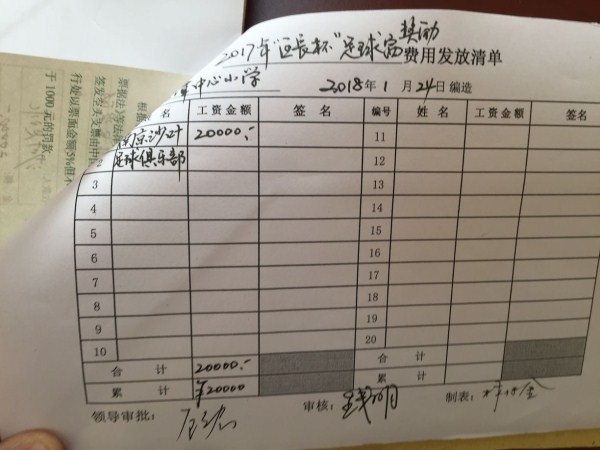 2017年"区长杯"足球赛奖励费用发放清单
中心小学 2018年1月24日编造
名 工资金额 签名 编号 姓名 工资金额 签名
南京沙叶 20000.- 11
足球俱乐部 12
3 13
4 14
5 15
6 16
7 17
8 18
9 19
10 20
合计 20000.- 合计
累计 ¥20000 累计
领导审批： 审核： 制表：
根据
票据法》等法律
签发空头支票由中
行处以票面金额5%但不
于1000元的罚款